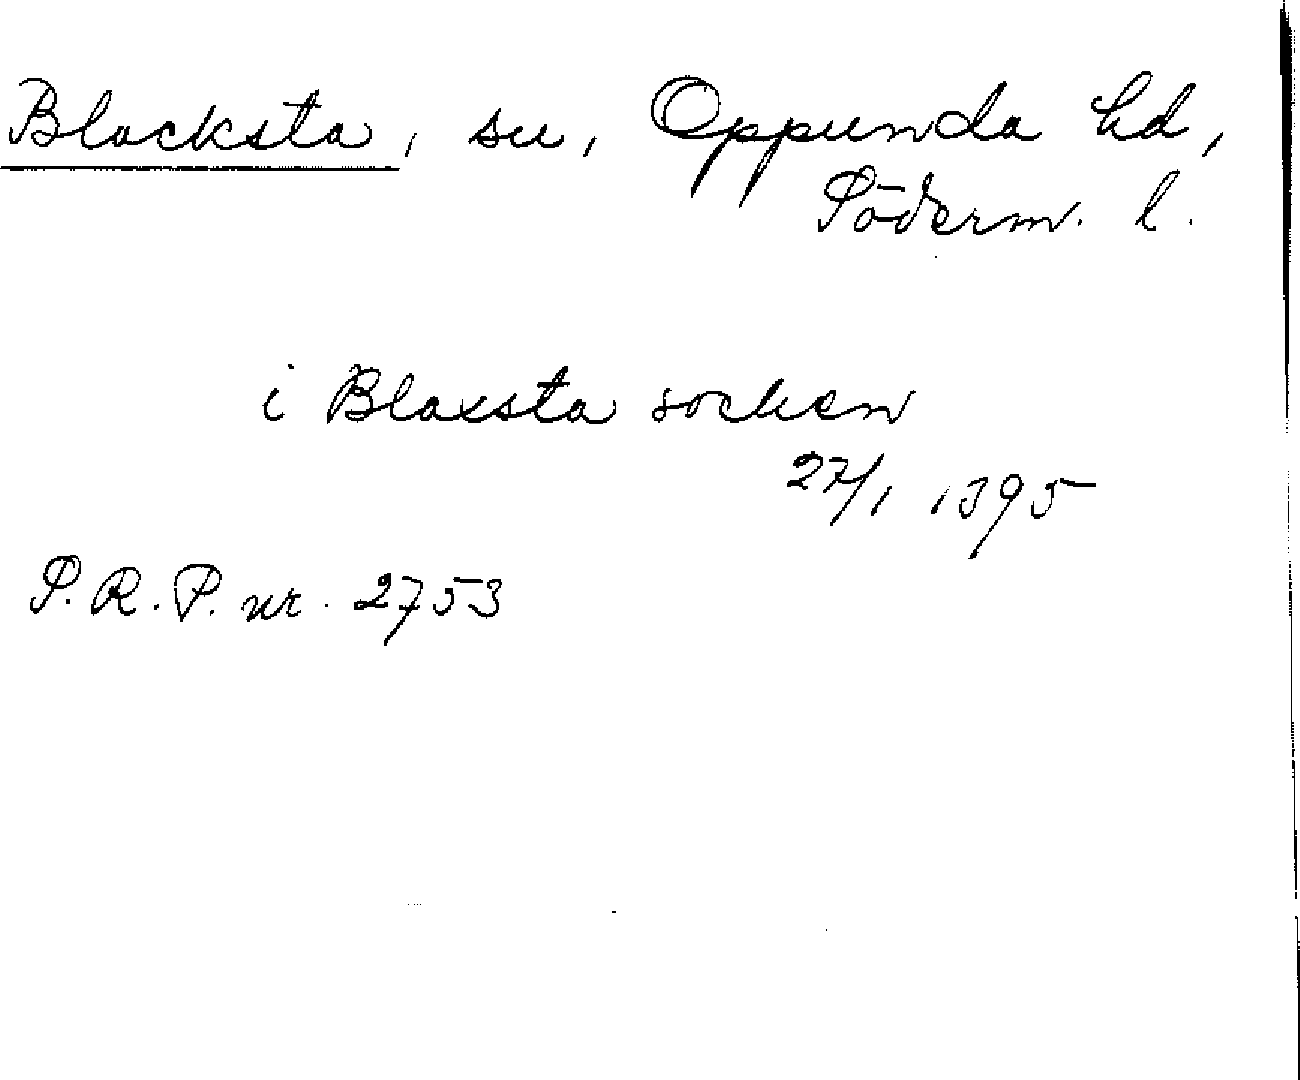 Blacksta, sn, Oppunda hd,
Söderm. l.
i Blaxsta socken
27/1 1395
S. R. P. nr. 2753